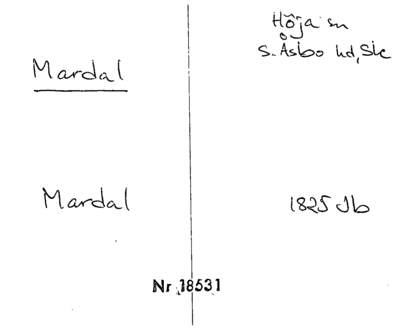 Höja sn
S. Åsbo hd, Sk
Mardal
Mardal
1825 Jb
Nr 18531